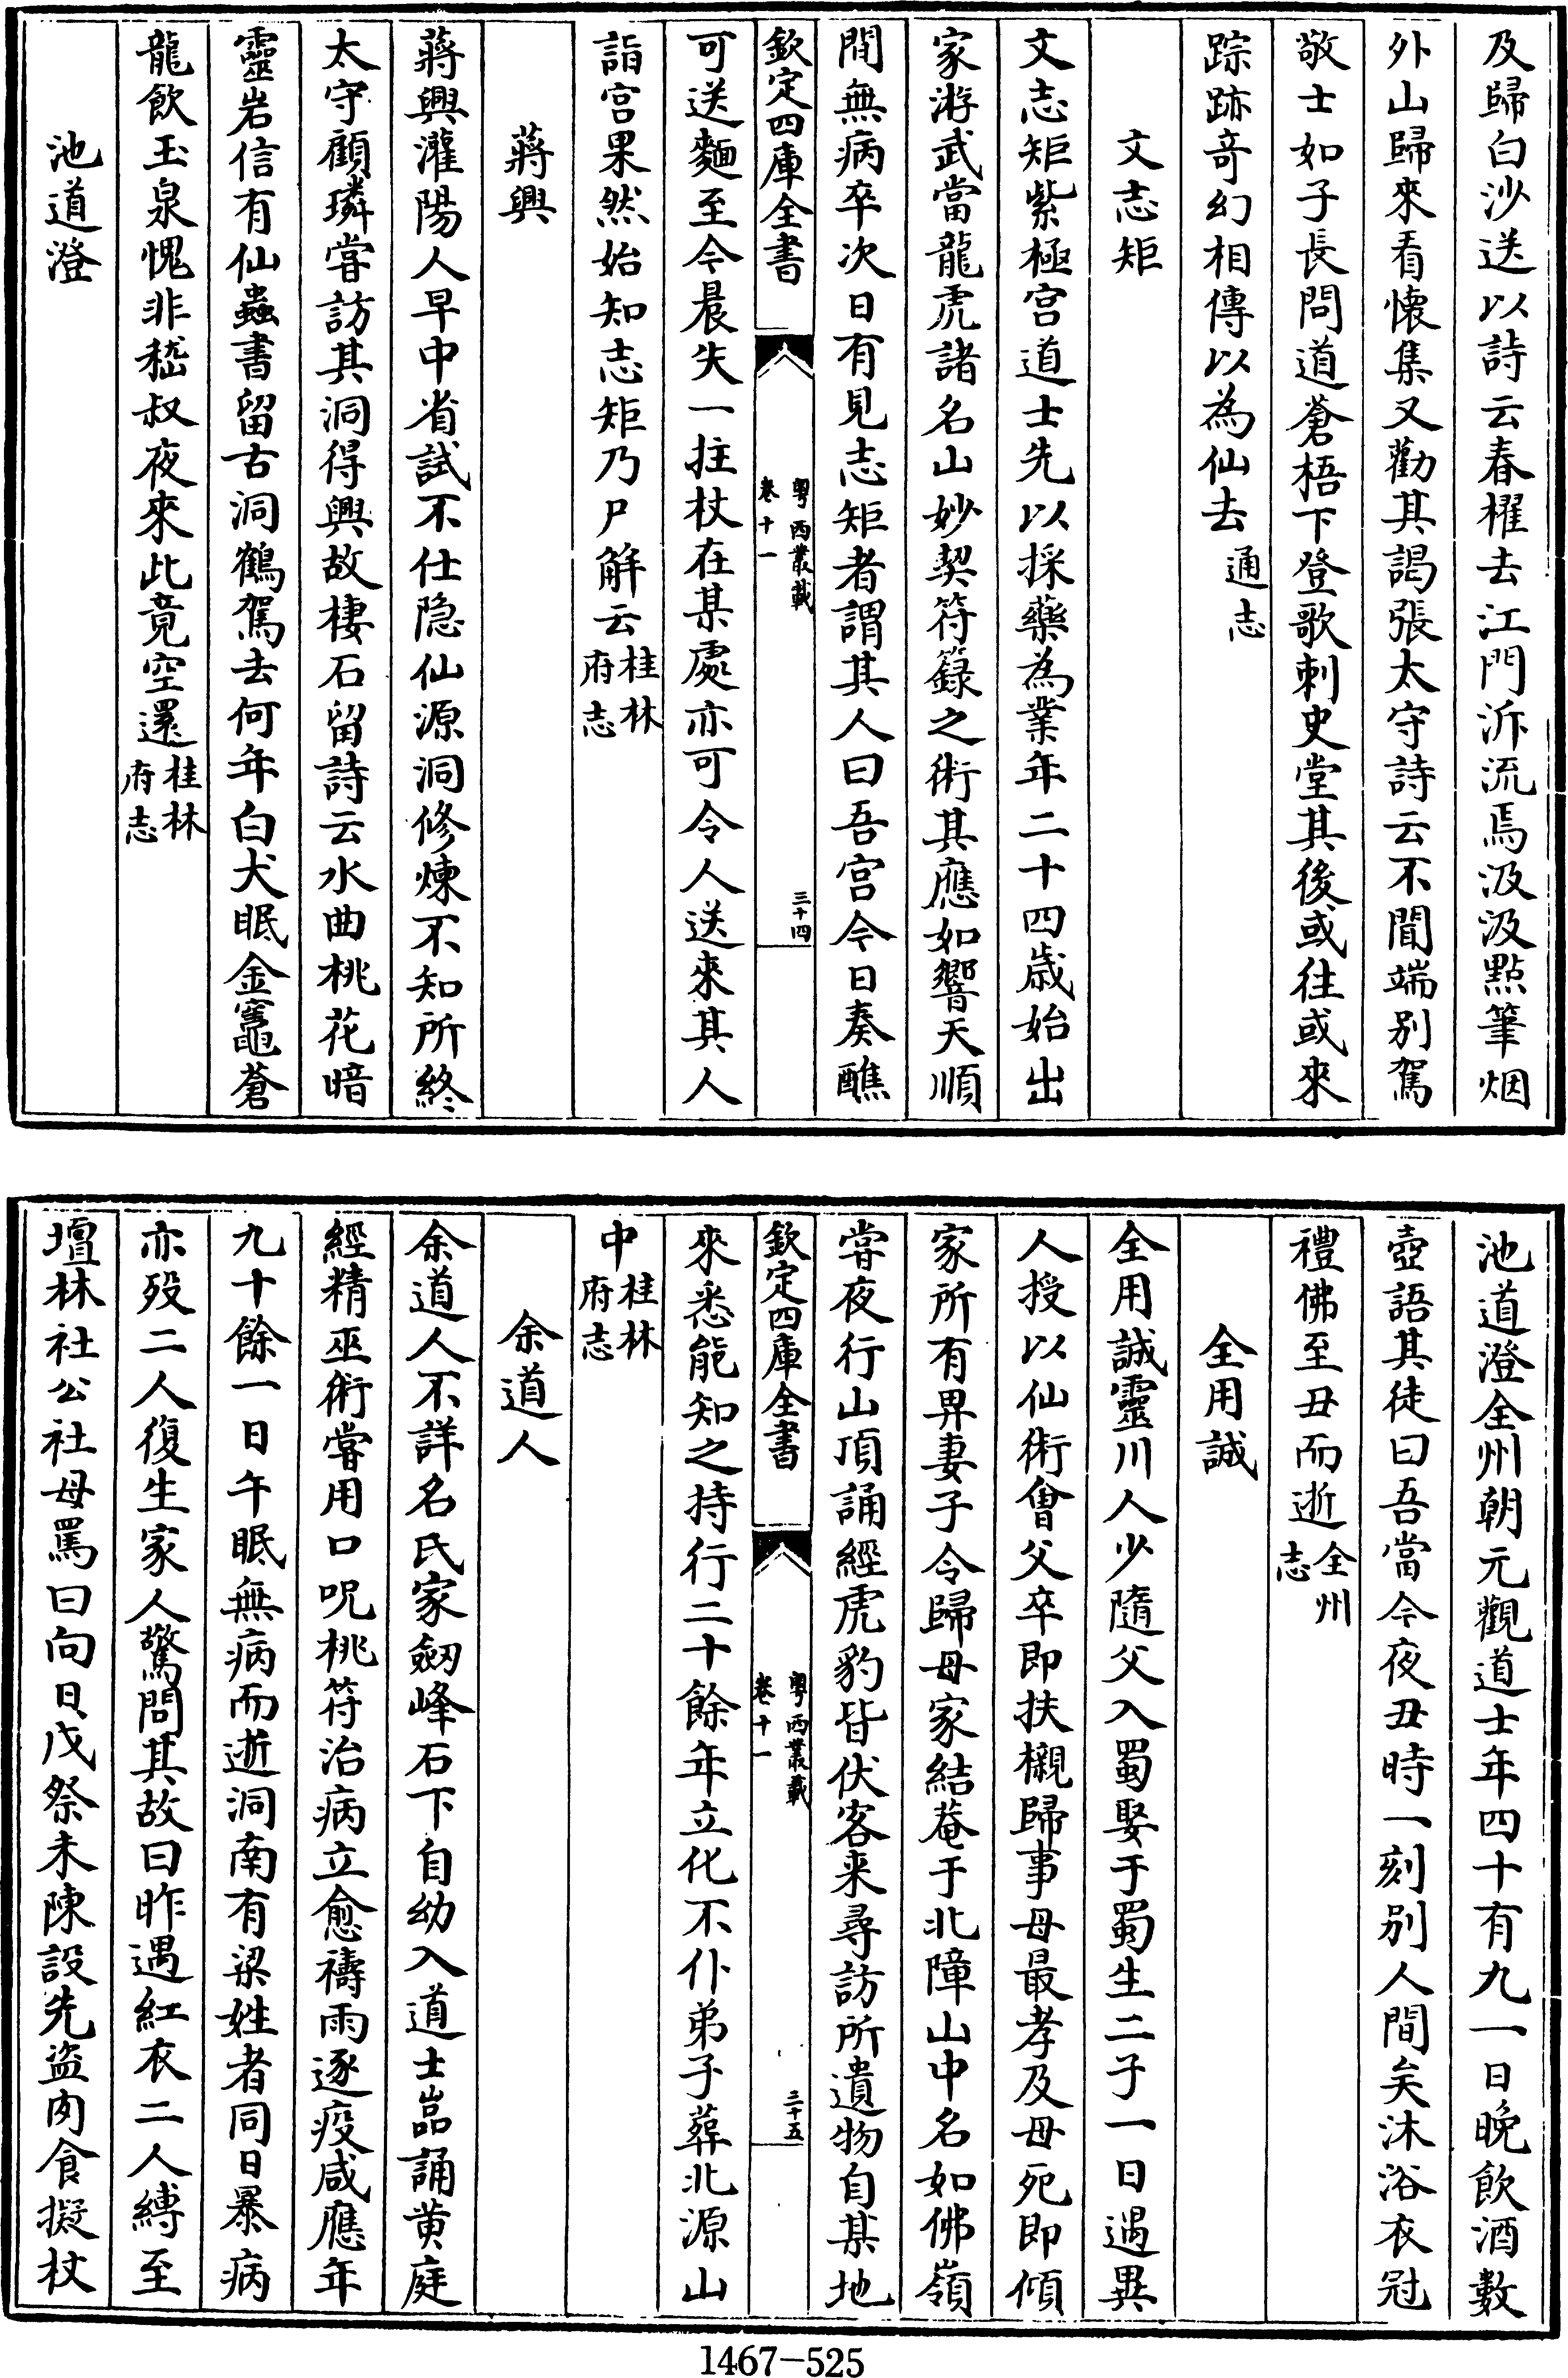 及歸白沙送以詩云春櫂去江門泝流焉汲汲㸃筆烟
外山歸來看懐集又勸其謁張太守詩云不聞端别駕
敬士如子長問道蒼梧下登歌刺史堂其後或往或來
踪跡竒幻相傳以為仙去通志
文志矩
文志矩紫極宫道士先以採藥為業年二十四歳始出
家游武當龍虎諸名山妙契符籙之術其應如響天順
間無病卒次日有見志矩者謂其人曰吾宫今日奏醮
欽定四庫全書
粤西叢載
卷十一
三十四
可送麵至今晨失一拄杖在某處亦可令人送來其人
詣宫果然始知志矩乃尸解云桂林府志
蔣興
蔣興灌陽人早中省試不仕隐仙源洞修煉不知所終
太守顧璘嘗訪其洞得興故棲石留詩云水曲桃花暗
靈岩信有仙蟲書留古洞鶴駕去何年白犬眠金竈蒼
龍飲玉泉愧非嵇叔夜來此竟空還桂林府志
池道澄
池道澄全州朝元觀道士年四十有九一日晚飲酒數
壺語其徒曰吾當今夜丑時一刻别人間矣沐浴衣冠
禮佛至丑而逝全州志
全用誠
全用誠靈川人少隨父入蜀娶于蜀生二子一日遇異
人授以仙術會父卒即扶櫬歸事母最孝及母死即傾
家所有畀妻子令歸母家結菴于北障山中名如佛嶺
嘗夜行山頂誦經虎豹皆伏客来尋訪所遺物自某地
欽定四庫全書
粤西叢載
卷十一
三十五
來悉能知之持行二十餘年立化不仆弟子葬北源山
中桂林府志
余道人
余道人不詳名氏家劒峰石下自幼入道士嵓誦黄庭
經精巫術嘗用口呪桃符治病立愈禱雨逐疫咸應年
九十餘一日午眠無病而逝洞南有梁姓者同日暴病
亦殁二人復生家人驚問其故曰昨遇紅衣二人縛至
壇林社公社母罵曰向日戊祭未陳設先盗肉食擬杖
1467-525